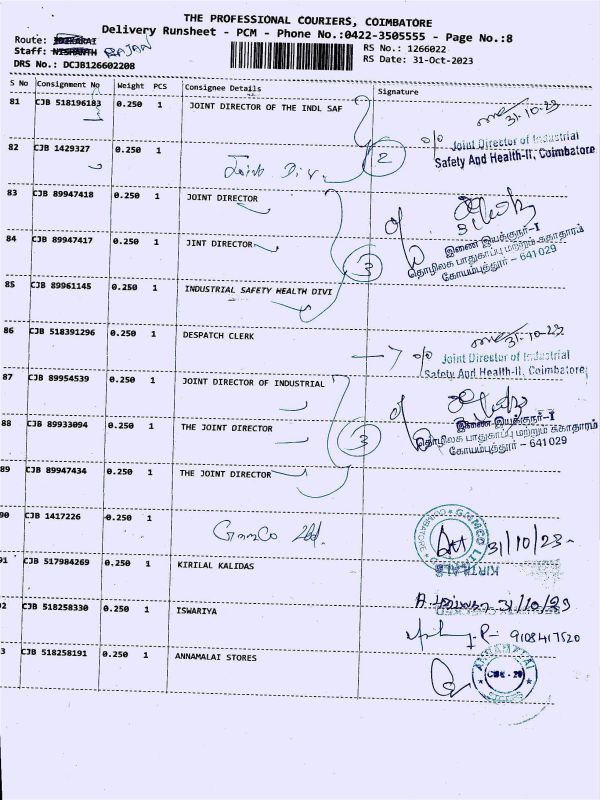 THE PROFESSIONAL COURIERS, COIMBATORE
Delivery Runsheet - PCM - Phone No.:0422-3505555 - Page No.:8
Route:
Staff: NISHANTH RAJAN
DRS No.: DCJB126602208
RS No.: 1266022
RS Date: 31-Oct-2023
S No Consignment No Weight PCS Consignee Details Signature
81 CJB 518196183 0.250 1 JOINT DIRECTOR OF THE INDL SAF
31-10-23
Joint Director of Industrial
Safety And Health-II, Coimbatore
82 CJB 1429327 0.250 1 Joint Div. 2
83 CJB 89947418 0.250 1 JOINT DIRECTOR
84 CJB 89947417 0.250 1 JINT DIRECTOR 3
இணை இயக்குநர்-I
தொழிலக பாதுகாப்பு மற்றும் சுகாதாரம்
கோயம்புத்தூர் - 641 029
85 CJB 89961145 0.250 1 INDUSTRIAL SAFETY HEALTH DIVI
86 CJB 518391296 0.250 1 DESPATCH CLERK
31-10-23
Joint Director of Industrial
Safety And Health-II, Coimbatore
87 CJB 89954539 0.250 1 JOINT DIRECTOR OF INDUSTRIAL
88 CJB 89933094 0.250 1 THE JOINT DIRECTOR 3
இணை இயக்குநர்-I
தொழிலக பாதுகாப்பு மற்றும் சுகாதாரம்
கோயம்புத்தூர் - 641 029
89 CJB 89947434 0.250 1 THE JOINT DIRECTOR
90 CJB 1417226 0.250 1 GmmCo Ltd. 31/10/23
91 CJB 517984269 0.250 1 KIRILAL KALIDAS
31/10/23
92 CJB 518258330 0.250 1 ISWARIYA
9108417520
93 CJB 518258191 0.250 1 ANNAMALAI STORES
ANNAMALAI
CBE - 29
STORES